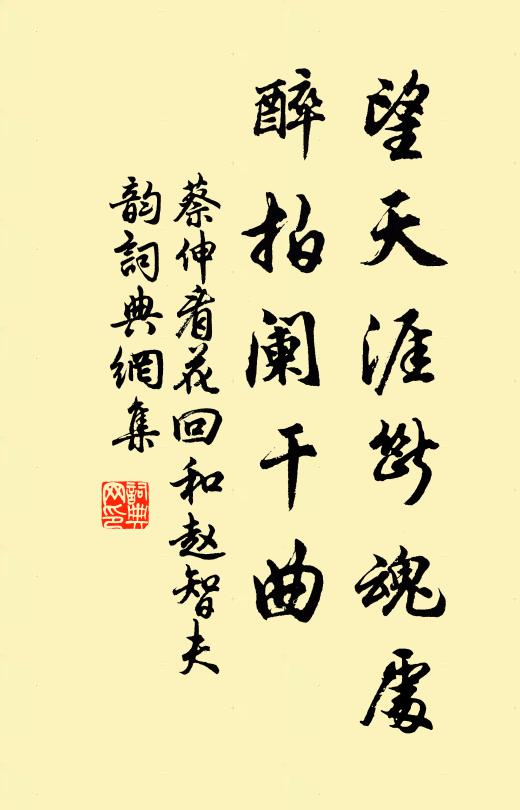 望天涯断魂處
醉拍阑干曲
蔡伸看花回和赵智夫
韵詞典網集
詞典网印